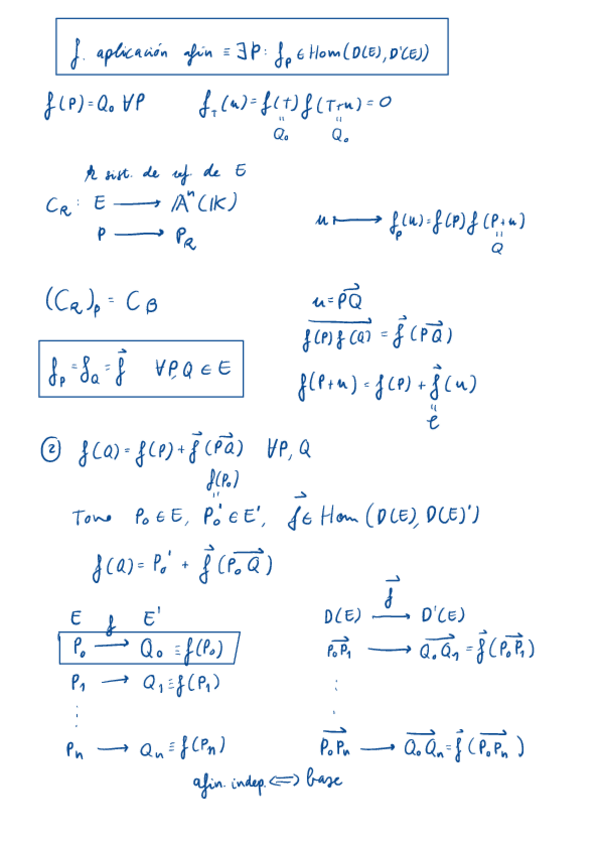 f. aplicación afín ≡ ∃P: f_P ∈ Hom(D(E), D'(E))
f(P) = Q₀ ∀P f_T(u) = f(T) f(T+u) = 0
" "
Q₀ Q₀
R sist. de ref de E
C_R : E ⟶ /Aⁿ(IK)
P ⟶ P_R
u ⟼ f_P(u) = f(P) f(P+u)
"
Q
(C_R)_P = C_B
u = PQ⃗
f(P) f(Q)⃗ = f⃗(PQ⃗)
f_P = f_Q = f⃗ ∀P,Q ∈ E
f(P+u) = f(P) + f⃗(u)
"
② f(Q) = f(P) + f⃗(PQ⃗) ∀P, Q
f(P₀)
"
Tomo P₀ ∈ E, P₀' ∈ E', f⃗ ∈ Hom (D(E), D(E)')
f(Q) = P₀' + f⃗(P₀Q⃗)
E f E'
P₀ ⟶ Q₀ ≡ f(P₀)
P₁ ⟶ Q₁ ≡ f(P₁)
⋮
Pₙ ⟶ Qₙ ≡ f(Pₙ)
f⃗
D(E) ⟶ D'(E)
P₀P₁⃗ ⟶ Q₀Q₁⃗ = f⃗(P₀P₁⃗)
⋮
P₀Pₙ⃗ ⟶ Q₀Qₙ⃗ = f⃗(P₀Pₙ⃗)
afin. indep. ⟺ base